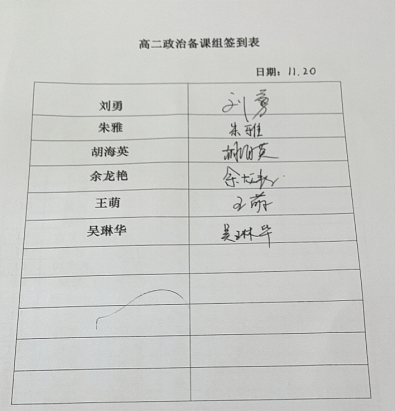 高二政治备课组签到表
日期：11.20
刘勇 刘勇
朱雅 朱雅
胡海英 胡海英
余龙艳 余龙艳
王萌 王萌
吴琳华 吴琳华